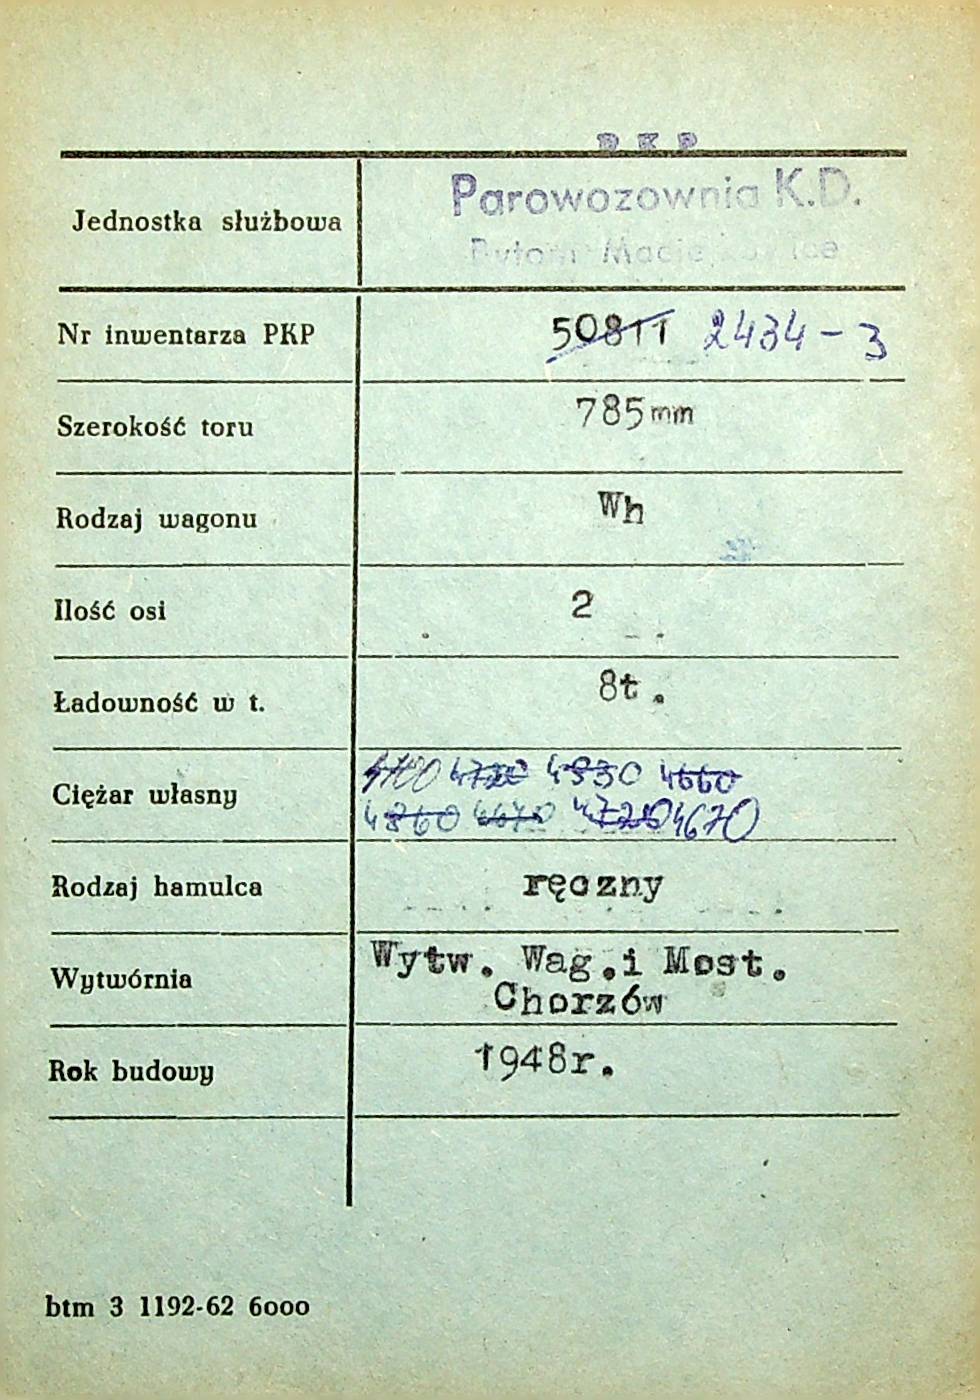 P K P
Jednostka służbowa Parowozownia K.D.
Bytom Maciejkowice
Nr inwentarza PKP 50811 2434-3
Szerokość toru 785mm
Rodzaj wagonu Wh
Ilość osi 2
Ładowność w t. 8t.
Ciężar własny 4700 4720 4830 4660
4860 4670 4720 4670
Rodzaj hamulca ręczny
Wytwórnia Wytw. Wag.i Most.
Chorzów
Rok budowy 1948r.
btm 3 1192-62 6000